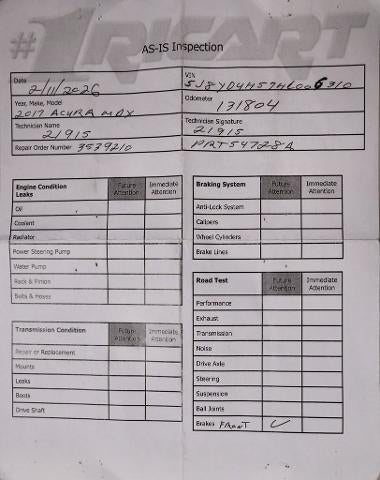 #1RICART
AS-IS Inspection
Date 2/11/2026
VIN 5J8YD4H57HL006310
Year, Make, Model 2017 ACURA MDX
Odometer 131804
Technician Name 21915
Technician Signature 21915
Repair Order Number 3539210
PRT547284
Engine Condition Leaks Future Attention Immediate Attention
Oil
Coolant
Radiator
Power Steering Pump
Water Pump
Rack & Pinion
Belts & Hoses
Transmission Condition Future Attention Immediate Attention
Repair or Replacement
Mounts
Leaks
Boots
Drive Shaft
Braking System Future Attention Immediate Attention
Anti-Lock System
Calipers
Wheel Cylinders
Brake Lines
Road Test Future Attention Immediate Attention
Performance
Exhaust
Transmission
Noise
Drive Axle
Steering
Suspension
Ball Joints
Brakes FRONT ✓